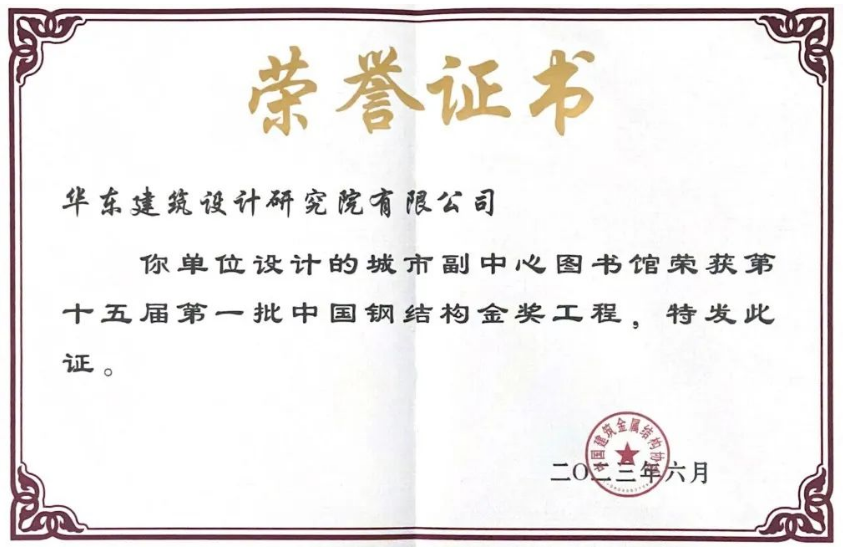 荣誉证书
华东建筑设计研究院有限公司
你单位设计的城市副中心图书馆荣获第
十五届第一批中国钢结构金奖工程，特发此
证。
中国建筑金属结构协会
二〇二三年六月